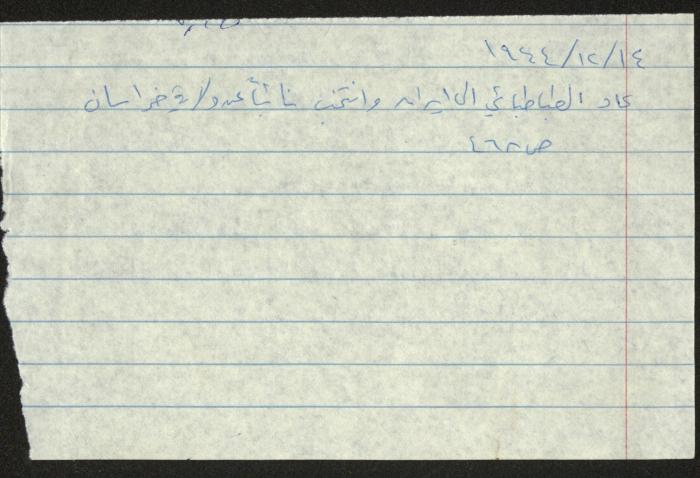 ١٩٤٤/١٢/١٤
عاد الطباطبائي الى ايران وانتخب نائباً عن ولاية خراسان
ص ٤٦٨